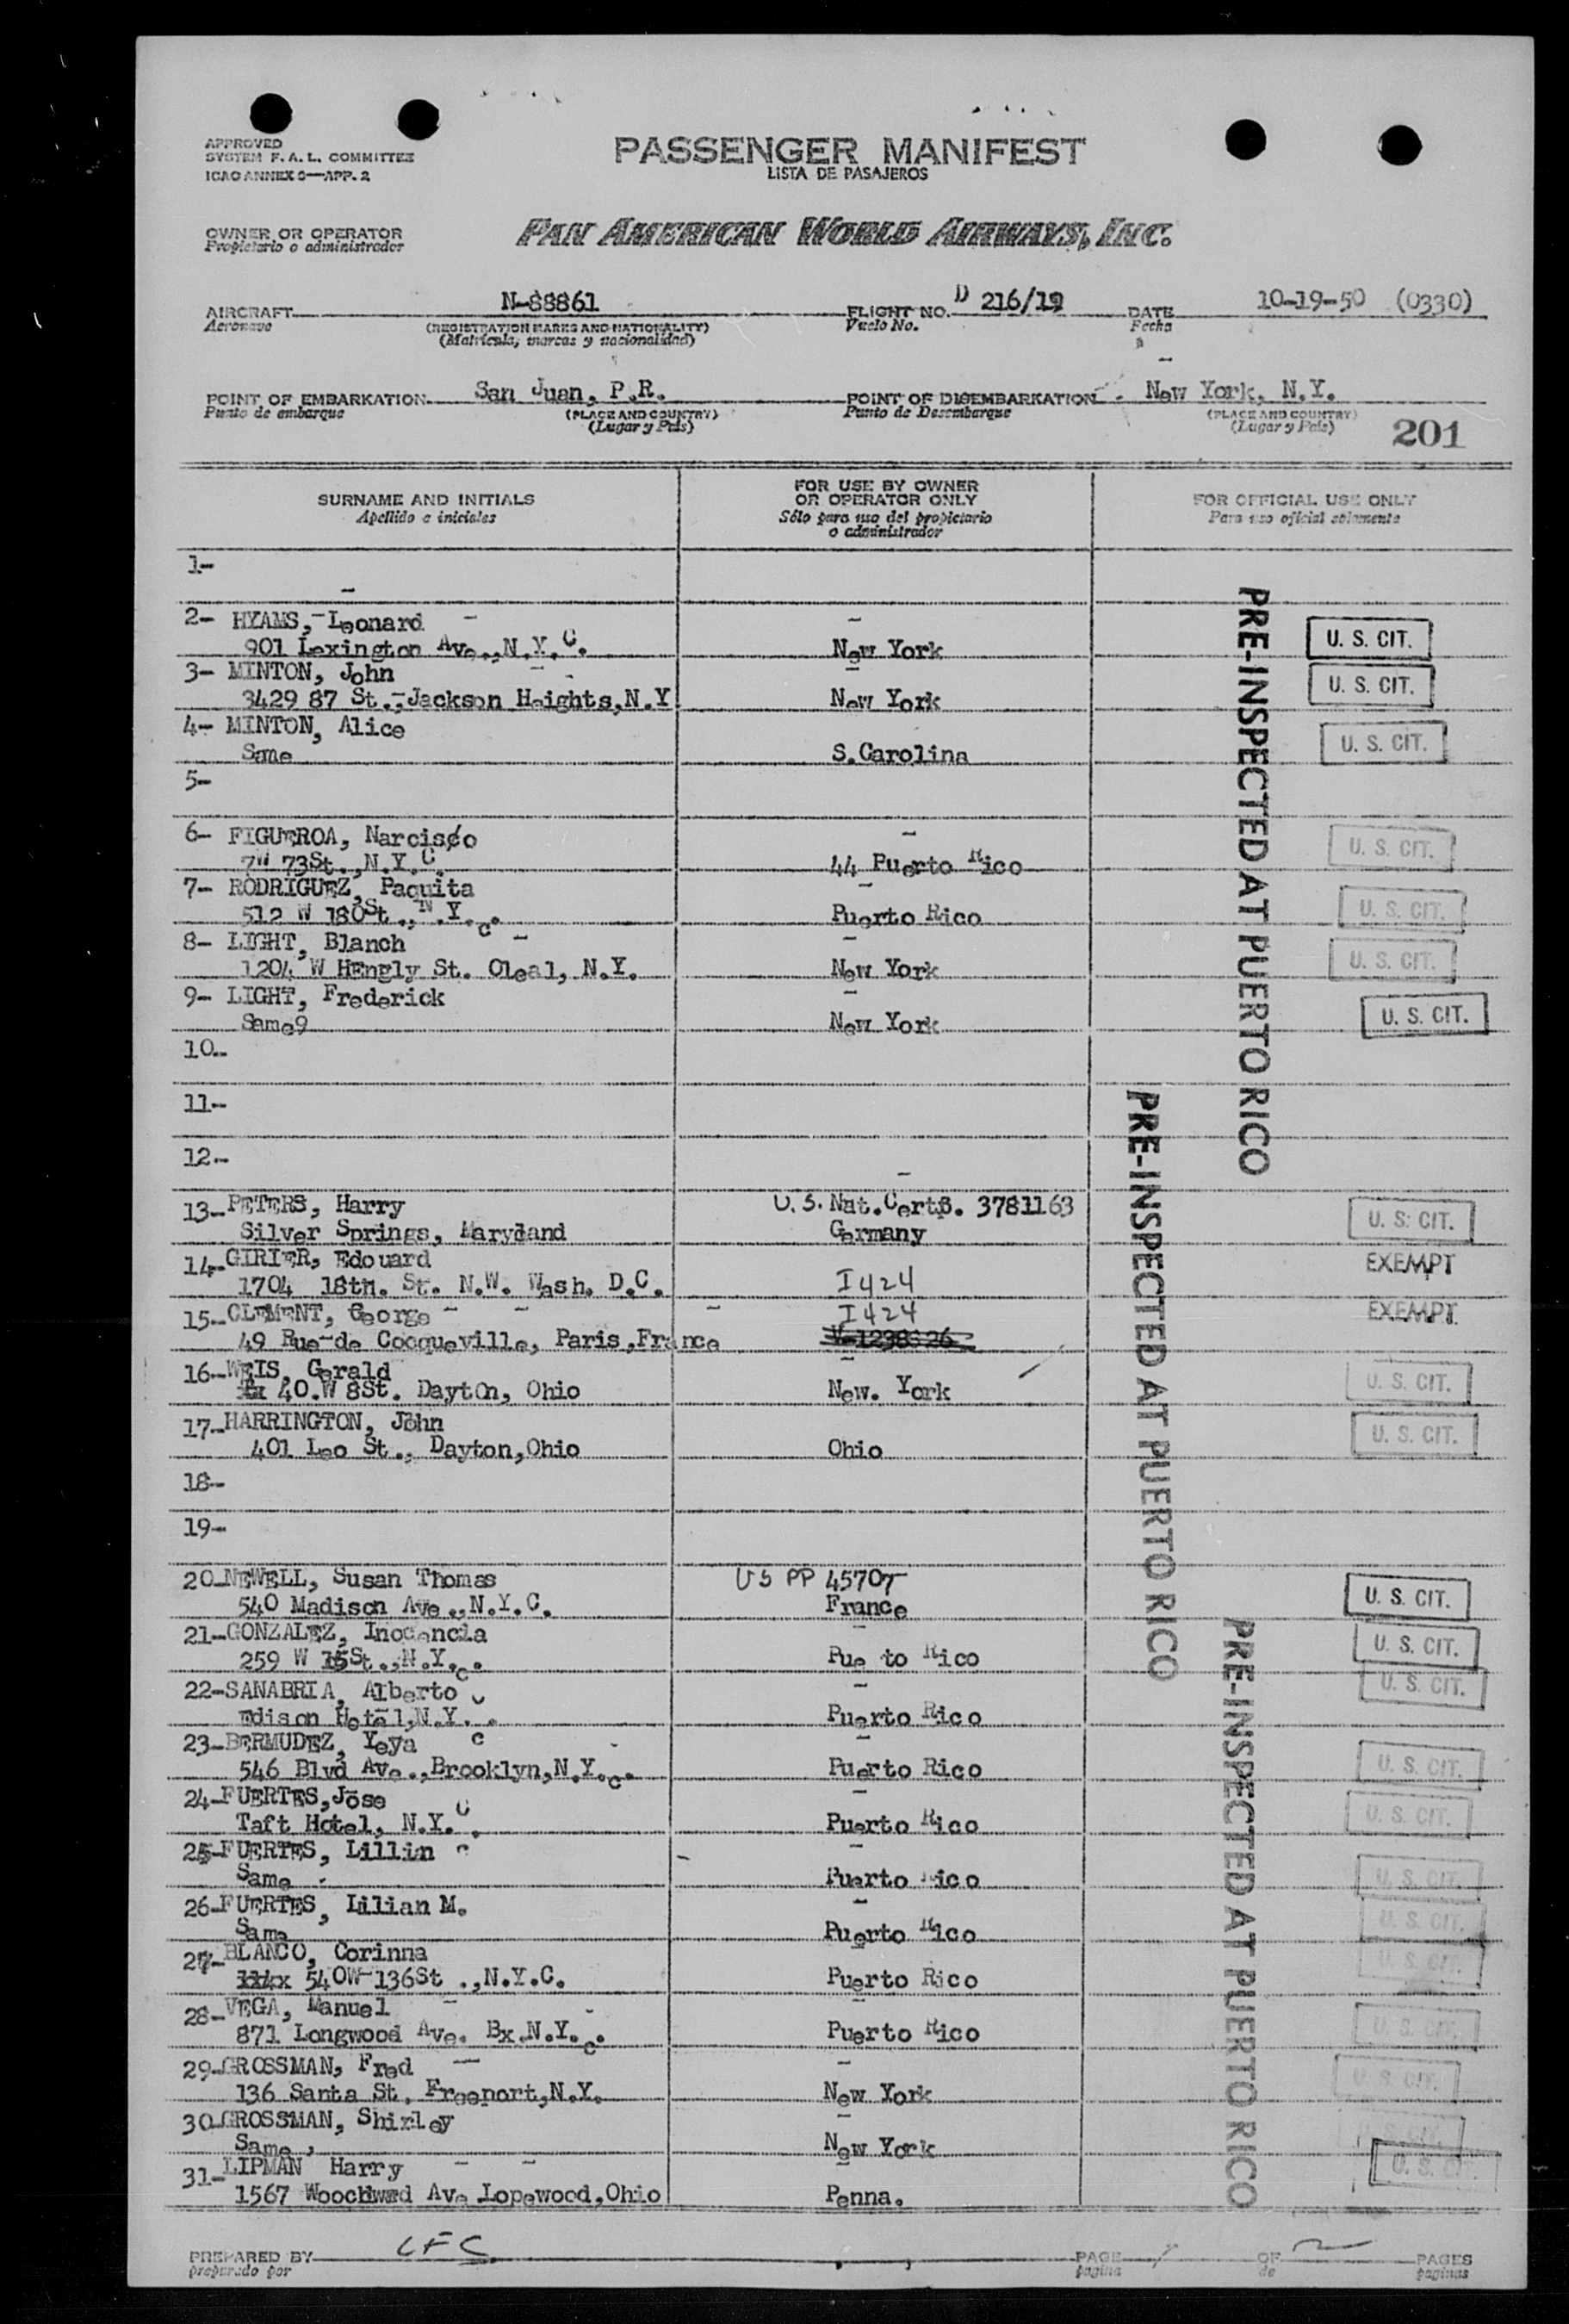 APPROVED
SYSTEM F. A. L. COMMITTEE
ICAO ANNEX 9—APP. 2
PASSENGER MANIFEST
LISTA DE PASAJEROS
OWNER OR OPERATOR
Propietario o administrador
PAN AMERICAN WORLD AIRWAYS, INC.
AIRCRAFT N-88861 FLIGHT NO. D 216/19 DATE 10-19-50 (0330)
Aeronave (REGISTRATION MARKS AND NATIONALITY) Vuelo No. Fecha
(Matrícula, marcas y nacionalidad)
POINT OF EMBARKATION San Juan, P.R. POINT OF DISEMBARKATION New York, N.Y.
Punto de embarque (PLACE AND COUNTRY) Punto de Desembarque (PLACE AND COUNTRY)
(Lugar y País) (Lugar y País) 201
SURNAME AND INITIALS FOR USE BY OWNER OR OPERATOR ONLY FOR OFFICIAL USE ONLY
Apellido e iniciales Sólo para uso del propietario o administrador Para uso oficial solamente
1-
2- HYAMS, Leonard
901 Lexington Ave., N.Y.C. New York U. S. CIT.
3- MINTON, John
3429 87 St., Jackson Heights, N.Y New York U. S. CIT.
4- MINTON, Alice
Same S.Carolina U. S. CIT.
5-
6- FIGUEROA, Narciso
7W 73St., N.Y.C. 44 Puerto Rico U. S. CIT.
7- RODRIGUEZ, Paquita
512 W 180St., N.Y.C. Puerto Rico U. S. CIT.
8- LIGHT, Blanch
1204 W HEngly St. Oleal, N.Y. New York U. S. CIT.
9- LIGHT, Frederick
Same9 New York U. S. CIT.
10-
11-
12-
13- PETERS, Harry U.S. Nat. Cert. 3781163
Silver Springs, Maryland Germany U. S. CIT.
14- GIRIER, Edouard EXEMPT
1704 18th. St. N.W. Wash. D.C. I424
15- CLEMENT, George I424 EXEMPT
49 Rue de Cocqueville, Paris, France
16- WEIS, Gerald
40.W 8St. Dayton, Ohio New. York U. S. CIT.
17- HARRINGTON, John
401 Leo St., Dayton, Ohio Ohio U. S. CIT.
18-
19-
20- NEWELL, Susan Thomas US PP 4570
540 Madison Ave., N.Y.C. France U. S. CIT.
21- GONZALEZ, Inocencia
259 W 15St., N.Y.C. Pue to Rico U. S. CIT.
22- SANABRIA, Alberto
Edison Hotel, N.Y.C. Puerto Rico U. S. CIT.
23- BERMUDEZ, Yeya
546 Blvd Ave., Brooklyn, N.Y.C. Puerto Rico U. S. CIT.
24- FUERTES, Jose
Taft Hotel, N.Y.C. Puerto Rico U. S. CIT.
25- FUERTES, Lillin
Same Puerto Rico U. S. CIT.
26- FUERTES, Lilian M.
Same Puerto Rico U. S. CIT.
27- BLANCO, Corinna
540W 136St ., N.Y.C. Puerto Rico U. S. CIT.
28- VEGA, Manuel
871 Longwood Ave. Bx.N.Y.C. Puerto Rico U. S. CIT.
29- GROSSMAN, Fred
136 Santa St, Freeport, N.Y. New York U. S. CIT.
30- GROSSMAN, Shirley
Same, New York U. S. CIT.
31- LIPMAN Harry
1567 Ave Lopewood, Ohio Penna. U. S. CIT.
PRE-INSPECTED AT PUERTO RICO
PRE-INSPECTED AT PUERTO RICO
PRE-INSPECTED AT PUERTO RICO
PREPARED BY CFC PAGE 1 OF 2 PAGES
preparado por página de páginas